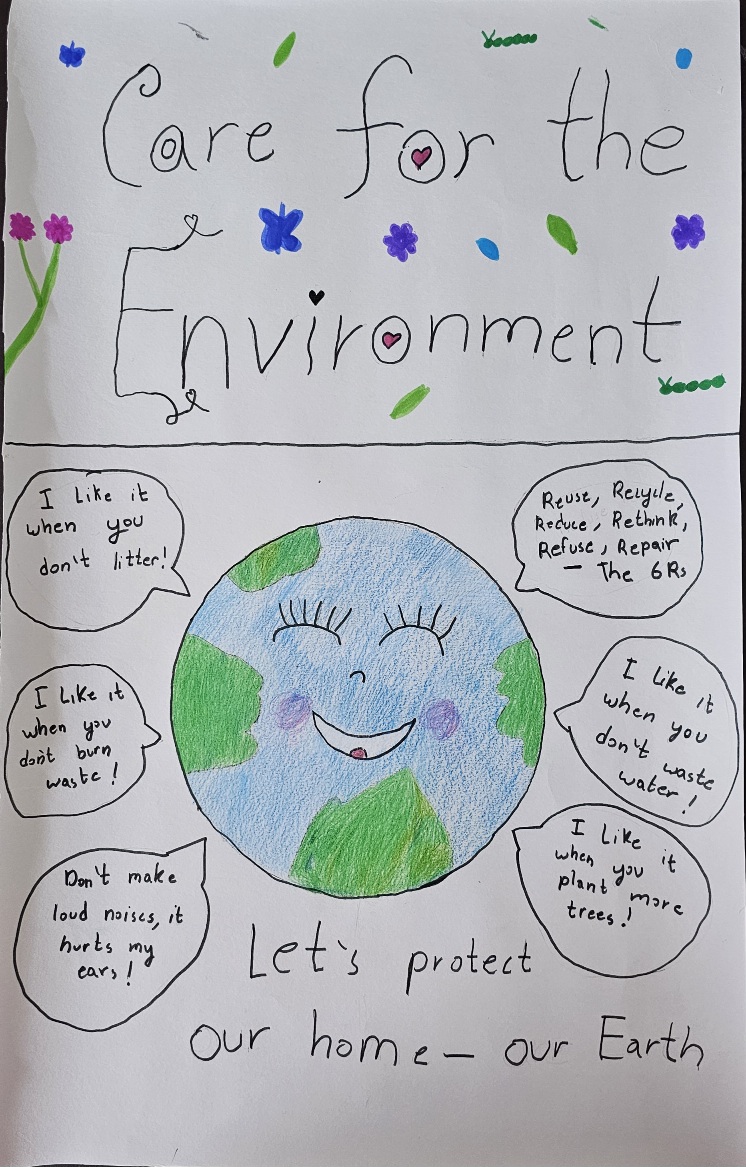 Care for the
Environment
I Like it
when you
don't litter!
Reuse, Recycle,
Reduce, Rethink,
Refuse, Repair
— The 6Rs
I Like it
when you
don't burn
waste!
I like it
when you
don't waste
water!
Don't make
loud noises, it
hurts my
ears!
I Like it
when you
plant more
trees!
Let's protect
our home — our Earth